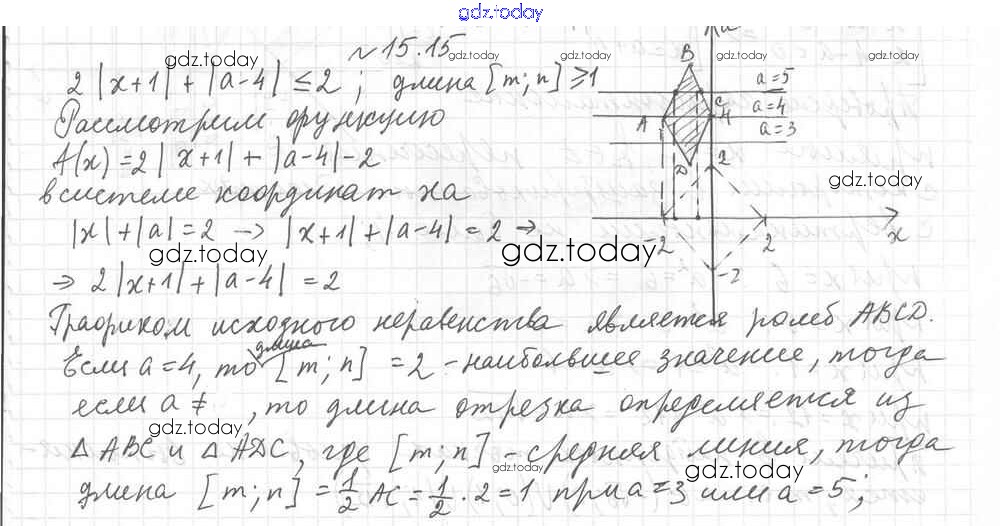 gdz.today
№15.15
2|x+1|+|a-4|≤2; длина [m;n]≥1
Рассмотрим функцию
A(x)=2|x+1|+|a-4|-2
в системе координат xa
|x|+|a|=2 → |x+1|+|a-4|=2 →
→ 2|x+1|+|a-4|=2
Графиком исходного неравенства является ромб ABCD.
Если a=4, то длина [m;n] = 2 - наибольшее значение, тогда
если a ≠ , то длина отрезка определяется из
△ABC и △ADC, где [m;n] - средняя линия, тогда
длина [m;n] = 1/2 AC = 1/2 · 2 = 1 при a=3 или a=5;
a
B
a=5
a=4
a=3
A
C
4
D
2
-2
2
x
-2
gdz.today
gdz.today
gdz.today
gdz.today
gdz.today
gdz.today
gdz.today
gdz.today
gdz.today
gdz.today
gdz.today